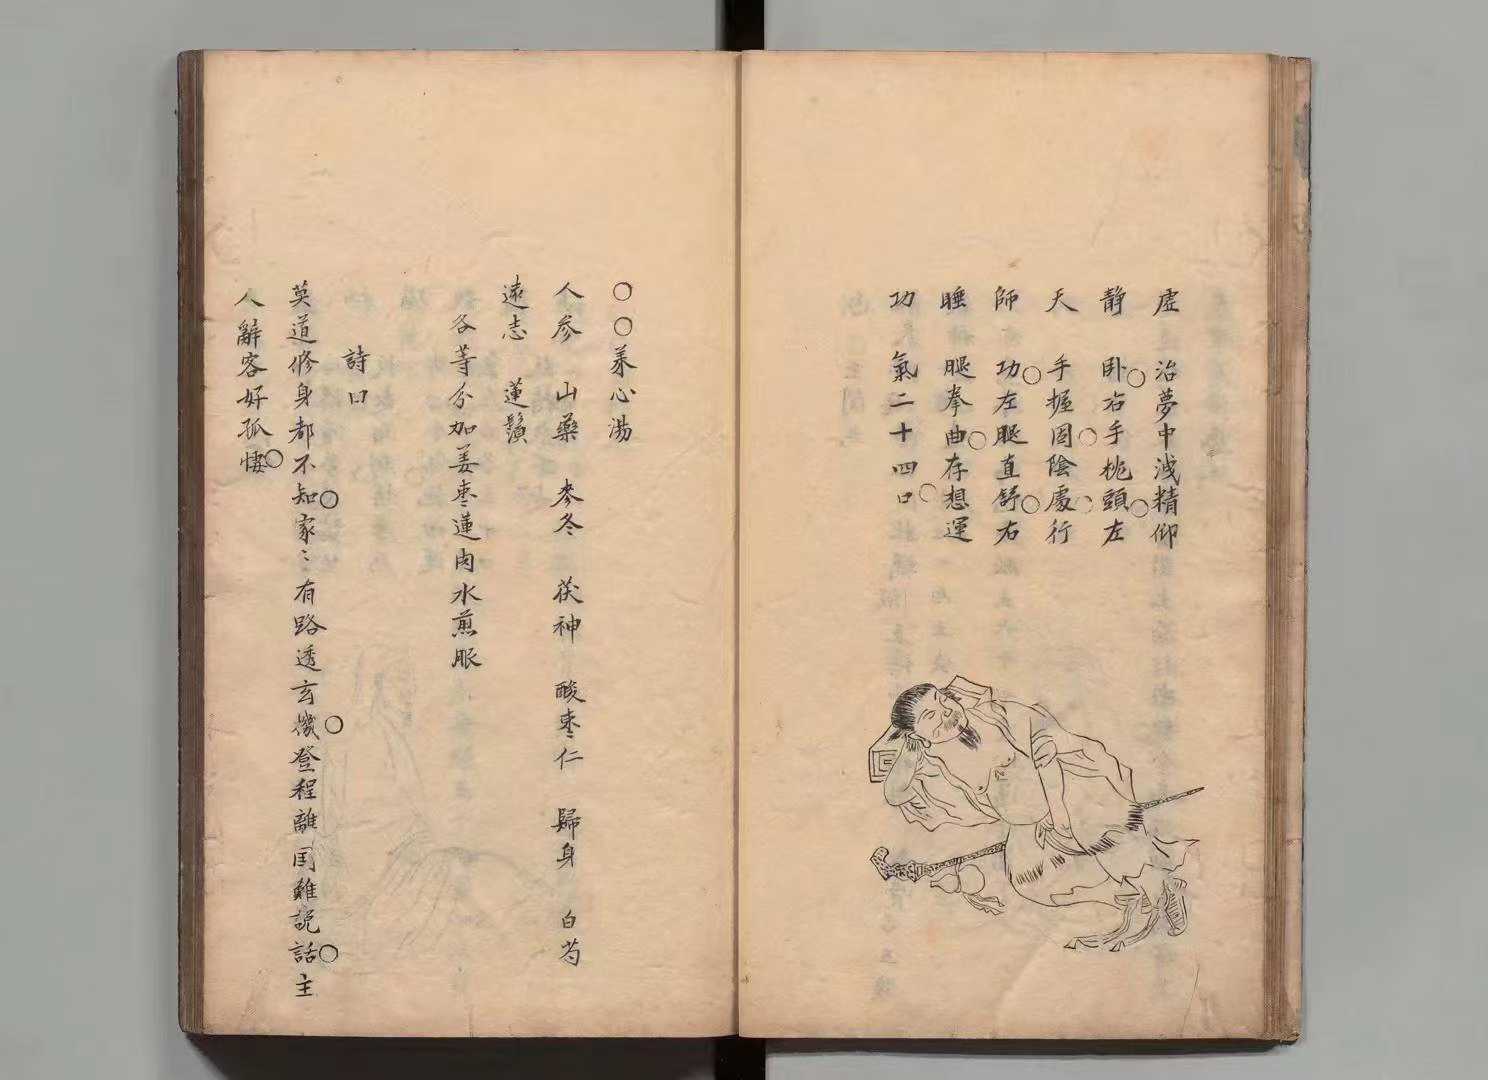 虚　治夢中洩精仰
静　卧○右手枕頭○左
天　手握固○陰處○行
師　功○左腿直舒○右
睡　腿拳曲○存想運
功　氣二十四口○
○○養心湯
人參　山藥　麥冬　茯神　酸棗仁　歸身　白芍
遠志　蓮鬚
各等分加姜棗蓮肉水煎服
詩曰
莫道修身都不知○家〻有路透玄機○登程離国難說話○主
人辭客好孤悽○